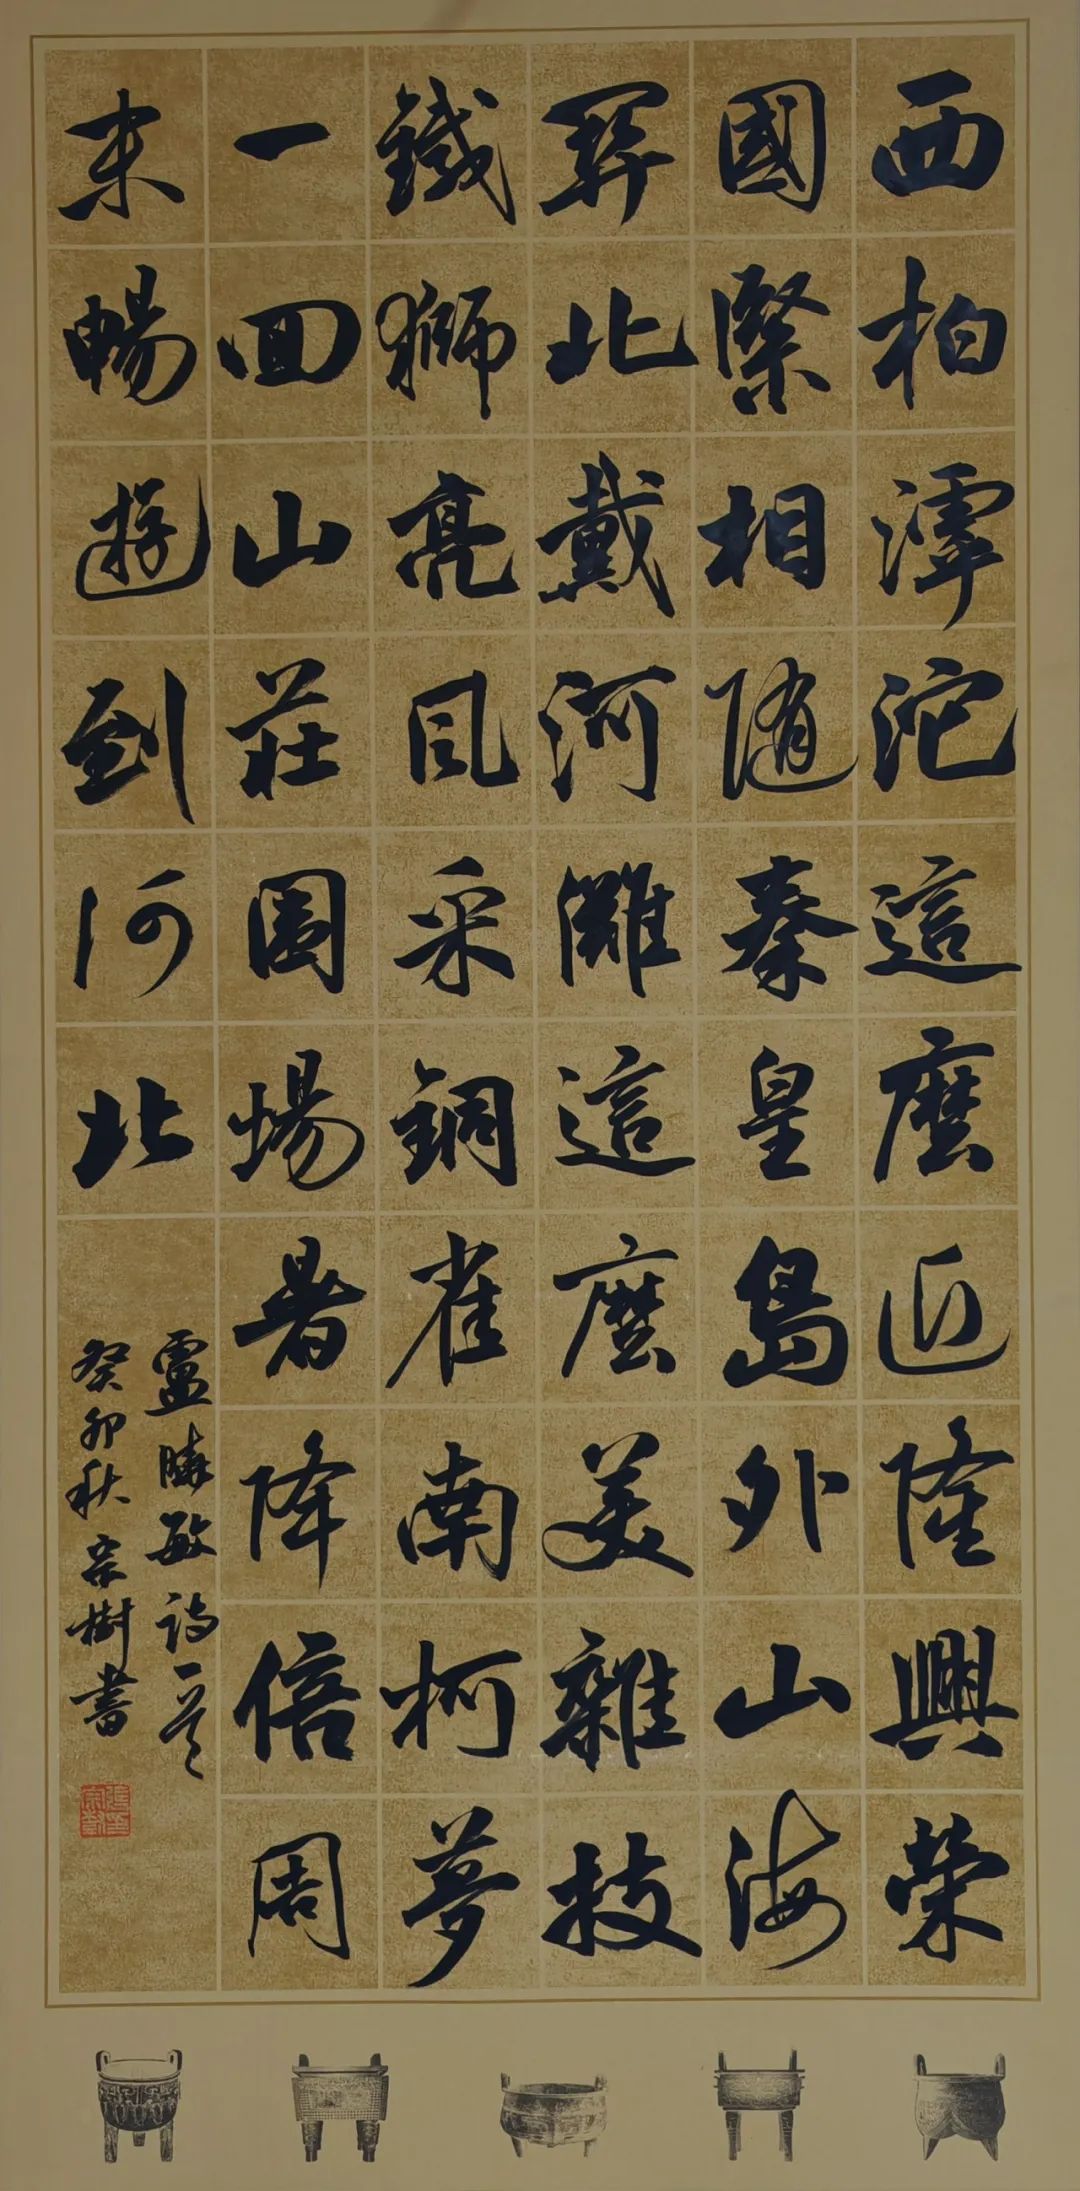 西柏滹沱這麼近隆興榮
國緊相隨秦皇島外山海
關北戴河灘這麼美雜技
鐵獅亮風采銅雀南柯夢
一回山莊圍場暑降倍周
末暢遊到河北
盧曉敏詩一首
癸卯秋宗樹書